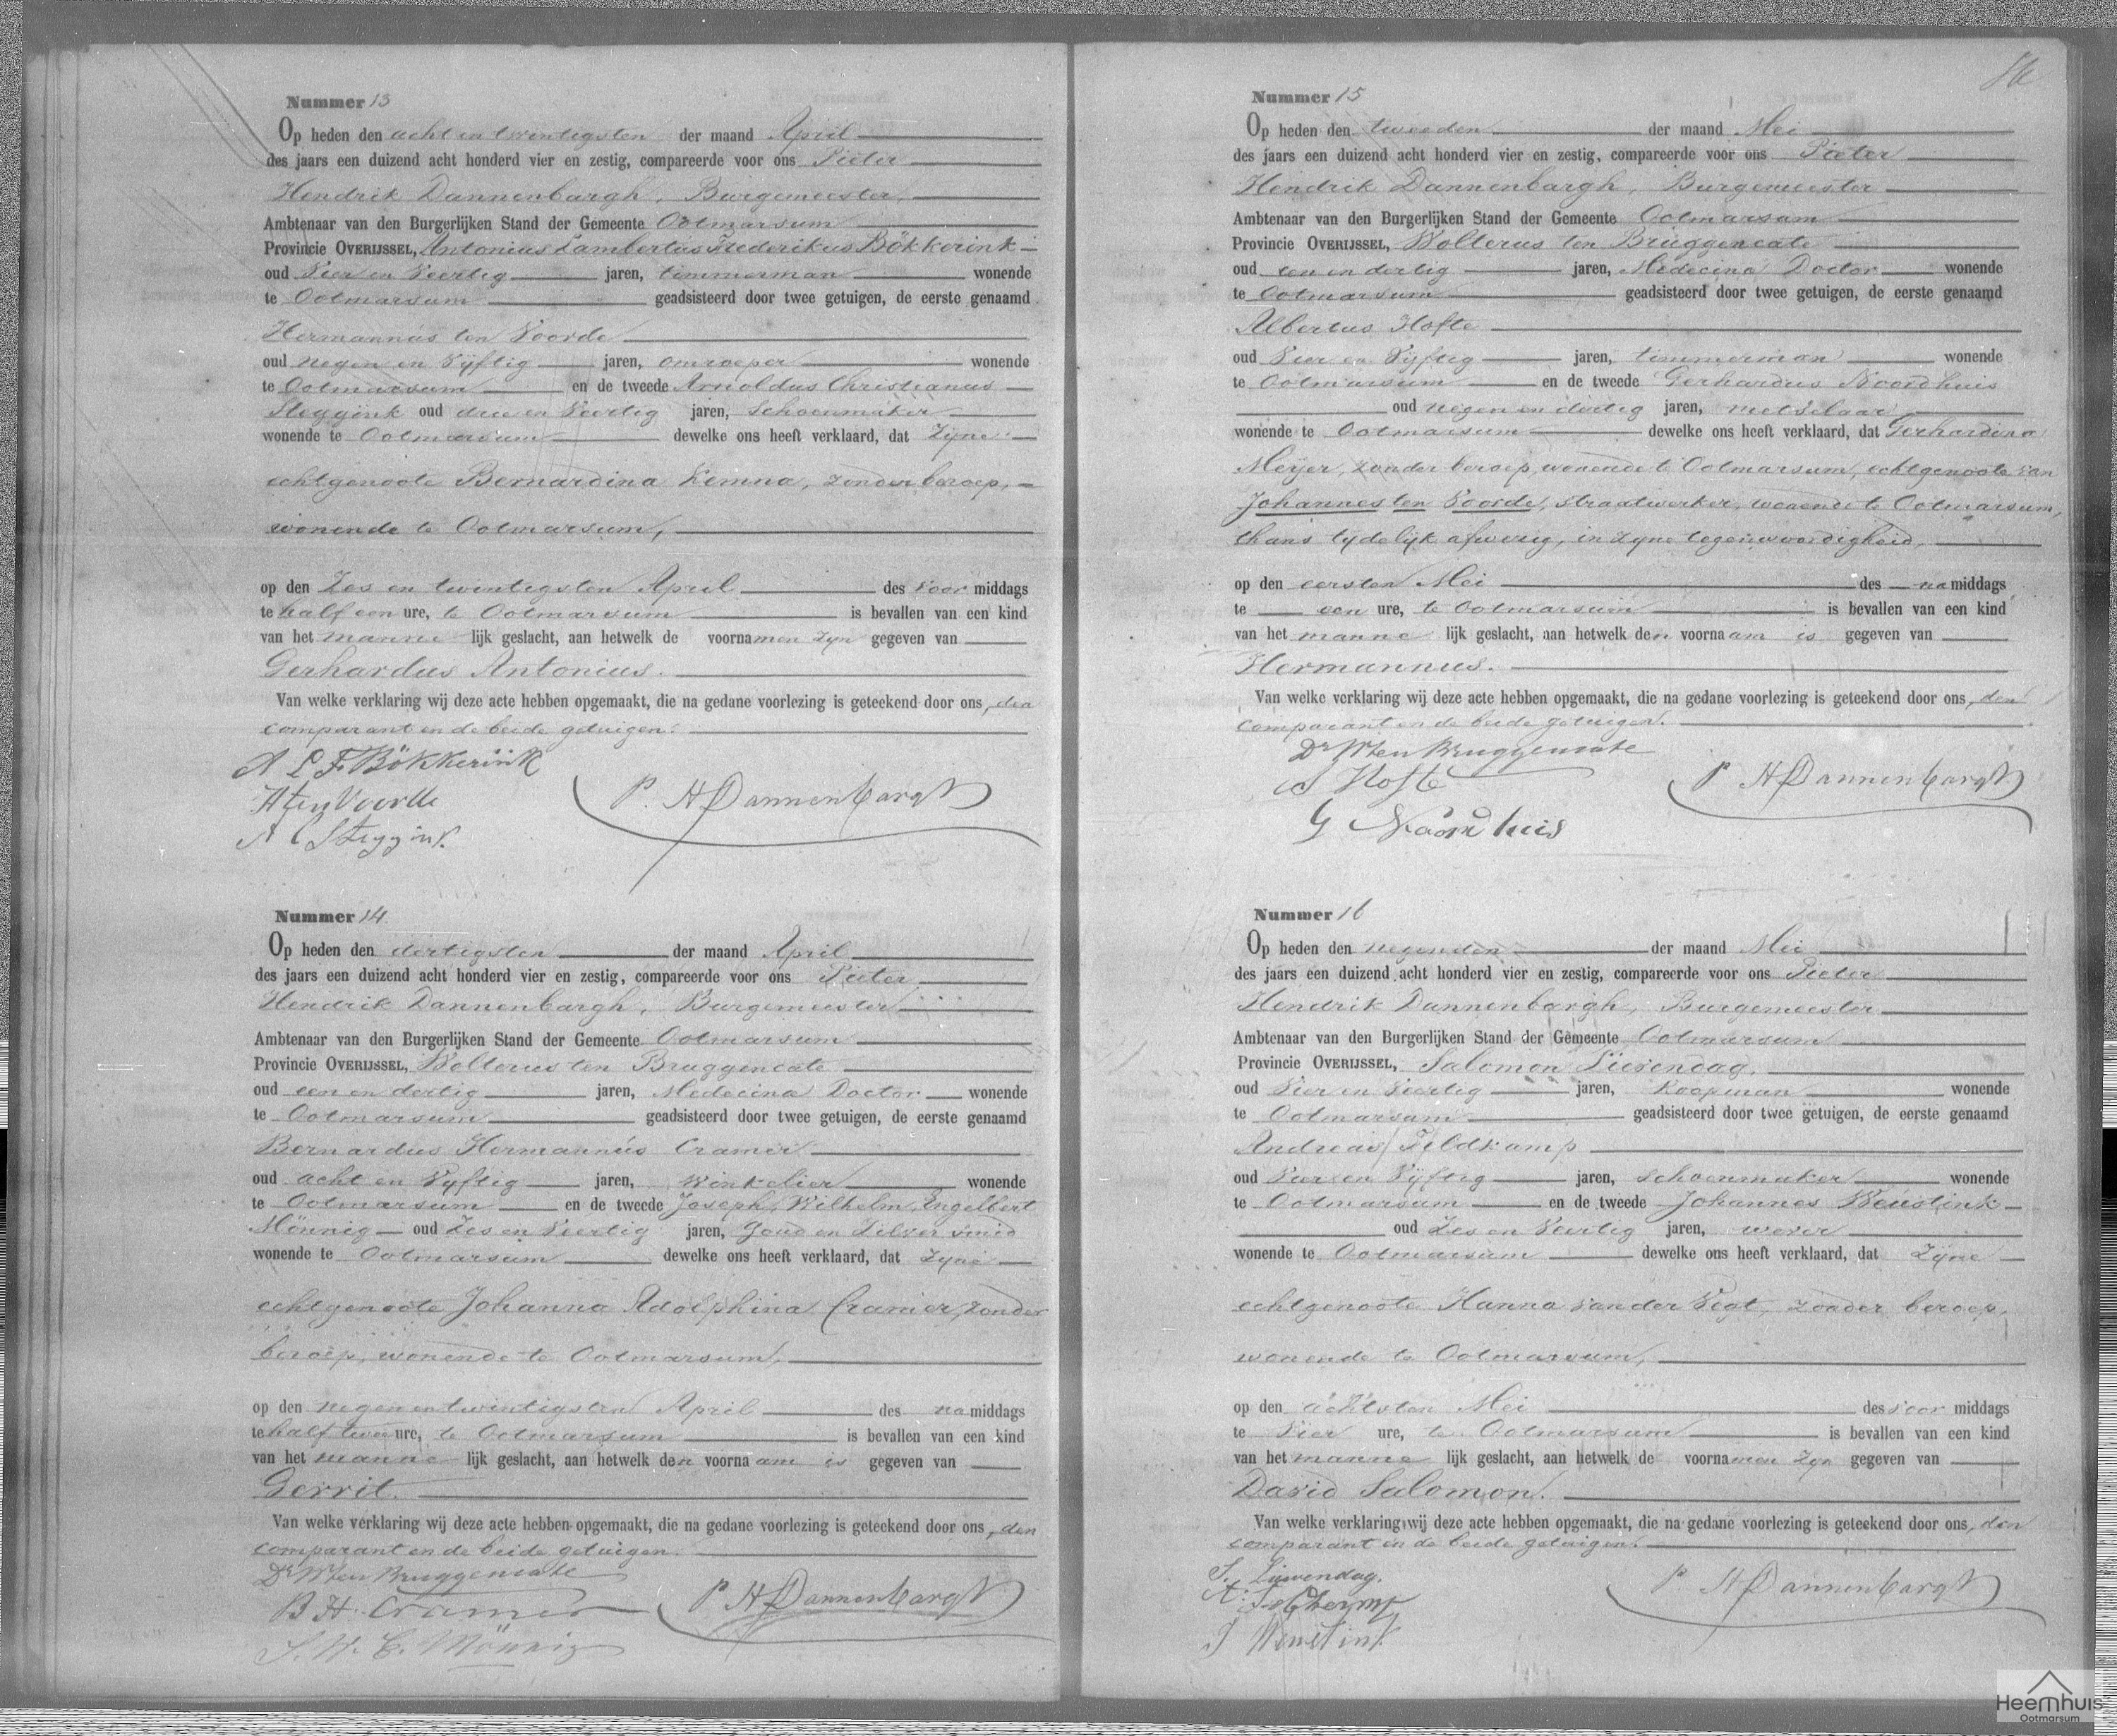 Nummer 13
Op heden den acht en twintigsten der maand April
des jaars een duizend acht honderd vier en zestig, compareerde voor ons Pieter
Hendrik Dannenbargh, Burgemeester,
Ambtenaar van den Burgerlijken Stand der Gemeente Ootmarsum
Provincie OVERIJSSEL, Antonius Lambertus Frederikus Bökkerink
oud Vier en Veertig jaren, timmerman wonende
te Ootmarsum geadsisteerd door twee getuigen, de eerste genaamd
Hermannus ten Voorde
oud negen en Vijftig jaren, omroeper wonende
te Ootmarsum en de tweede Arnoldus Christianus
Steggink oud drie en Veertig jaren, Schoenmaker
wonende te Ootmarsum dewelke ons heeft verklaard, dat Zijne
echtgenoote Bernardina Kemna, zonder beroep,
wonende te Ootmarsum,
op den Zes en twintigsten April des voor middags
te half een ure, te Ootmarsum is bevallen van een kind
van het manne lijk geslacht, aan hetwelk de voornamen zijn gegeven van
Gerhardus Antonius.
Van welke verklaring wij deze acte hebben opgemaakt, die na gedane voorlezing is geteekend door ons, den
comparant en de beide getuigen.
A L F Bökkerink
H ten Voorde
P. H Dannenbargh
A C Steggink.
Nummer 14
Op heden den dertigsten der maand April
des jaars een duizend acht honderd vier en zestig, compareerde voor ons Pieter
Hendrik Dannenbargh, Burgemeester
Ambtenaar van den Burgerlijken Stand der Gemeente Ootmarsum
Provincie OVERIJSSEL, Wolterus ten Bruggencate
oud een en dertig jaren, Medecina Doctor wonende
te Ootmarsum geadsisteerd door twee getuigen, de eerste genaamd
Bernardus Hermannus Cramer
oud acht en Vijftig jaren, Winkelier wonende
te Ootmarsum en de tweede Joseph Wilhelm Engelbert
Mönnig oud Zes en Veertig jaren, Goud en Zilver smid
wonende te Ootmarsum dewelke ons heeft verklaard, dat Zijne
echtgenoote Johanna Adolphina Cramer, zonder
beroep, wonende te Ootmarsum,
op den negen en twintigsten April des na middags
te half twee ure, te Ootmarsum is bevallen van een kind
van het manne lijk geslacht, aan hetwelk den voorna am is gegeven van
Gerrit.
Van welke verklaring wij deze acte hebben opgemaakt, die na gedane voorlezing is geteekend door ons, den
comparant en de beide getuigen.
Dr W ten Bruggencate
B H. Cramer
P. H Dannenbargh
J. W. E. Mönnig
86
Nummer 15
Op heden den tweeden der maand Mei
des jaars een duizend acht honderd vier en zestig, compareerde voor ons Pieter
Hendrik Dannenbargh, Burgemeester
Ambtenaar van den Burgerlijken Stand der Gemeente Ootmarsum
Provincie OVERIJSSEL, Wolterus ten Bruggencate
oud een en dertig jaren, Medecina Doctor wonende
te Ootmarsum geadsisteerd door twee getuigen, de eerste genaamd
Albertus Hofte
oud Vier en Vijftig jaren, timmerman wonende
te Ootmarsum en de tweede Gerhardus Noordhuis
oud negen en dertig jaren, metselaar
wonende te Ootmarsum dewelke ons heeft verklaard, dat Gerhardina
Meijer, zonder beroep, wonende te Ootmarsum, echtgenoote van
Johannes ten Voorde, straatwerker, wonende te Ootmarsum,
thans tijdelijk afwezig, in zijne tegenwoordigheid,
op den eersten Mei des na middags
te een ure, te Ootmarsum is bevallen van een kind
van het manne lijk geslacht, aan hetwelk den voorna am is gegeven van
Hermannus.
Van welke verklaring wij deze acte hebben opgemaakt, die na gedane voorlezing is geteekend door ons, den
comparant en de beide getuigen.
Dr W ten Bruggencate
A Hofte
P H Dannenbargh
G Noordhuis
Nummer 16
Op heden den negenden der maand Mei
des jaars een duizend acht honderd vier en zestig, compareerde voor ons Pieter
Hendrik Dannenbargh, Burgemeester
Ambtenaar van den Burgerlijken Stand der Gemeente Ootmarsum
Provincie OVERIJSSEL, Salomon Lievendag,
oud Vier en Veertig jaren, Koopman wonende
te Ootmarsum geadsisteerd door twee getuigen, de eerste genaamd
Andreas Feldkamp
oud Vier en Vijftig jaren, schoenmaker wonende
te Ootmarsum en de tweede Johannes Weustink
oud Zes en Veertig jaren, wever
wonende te Ootmarsum dewelke ons heeft verklaard, dat Zijne
echtgenoote Hanna van der Vegt, zonder beroep,
wonende te Ootmarsum,
op den achtsten Mei des voor middags
te Vier ure, te Ootmarsum is bevallen van een kind
van het manne lijk geslacht, aan hetwelk de voornamen zijn gegeven van
David Salomon.
Van welke verklaring wij deze acte hebben opgemaakt, die na gedane voorlezing is geteekend door ons, den
comparant en de beide getuigen.
S. Lievendag.
P H Dannenbargh
J Weustink
Heemhuis
Ootmarsum